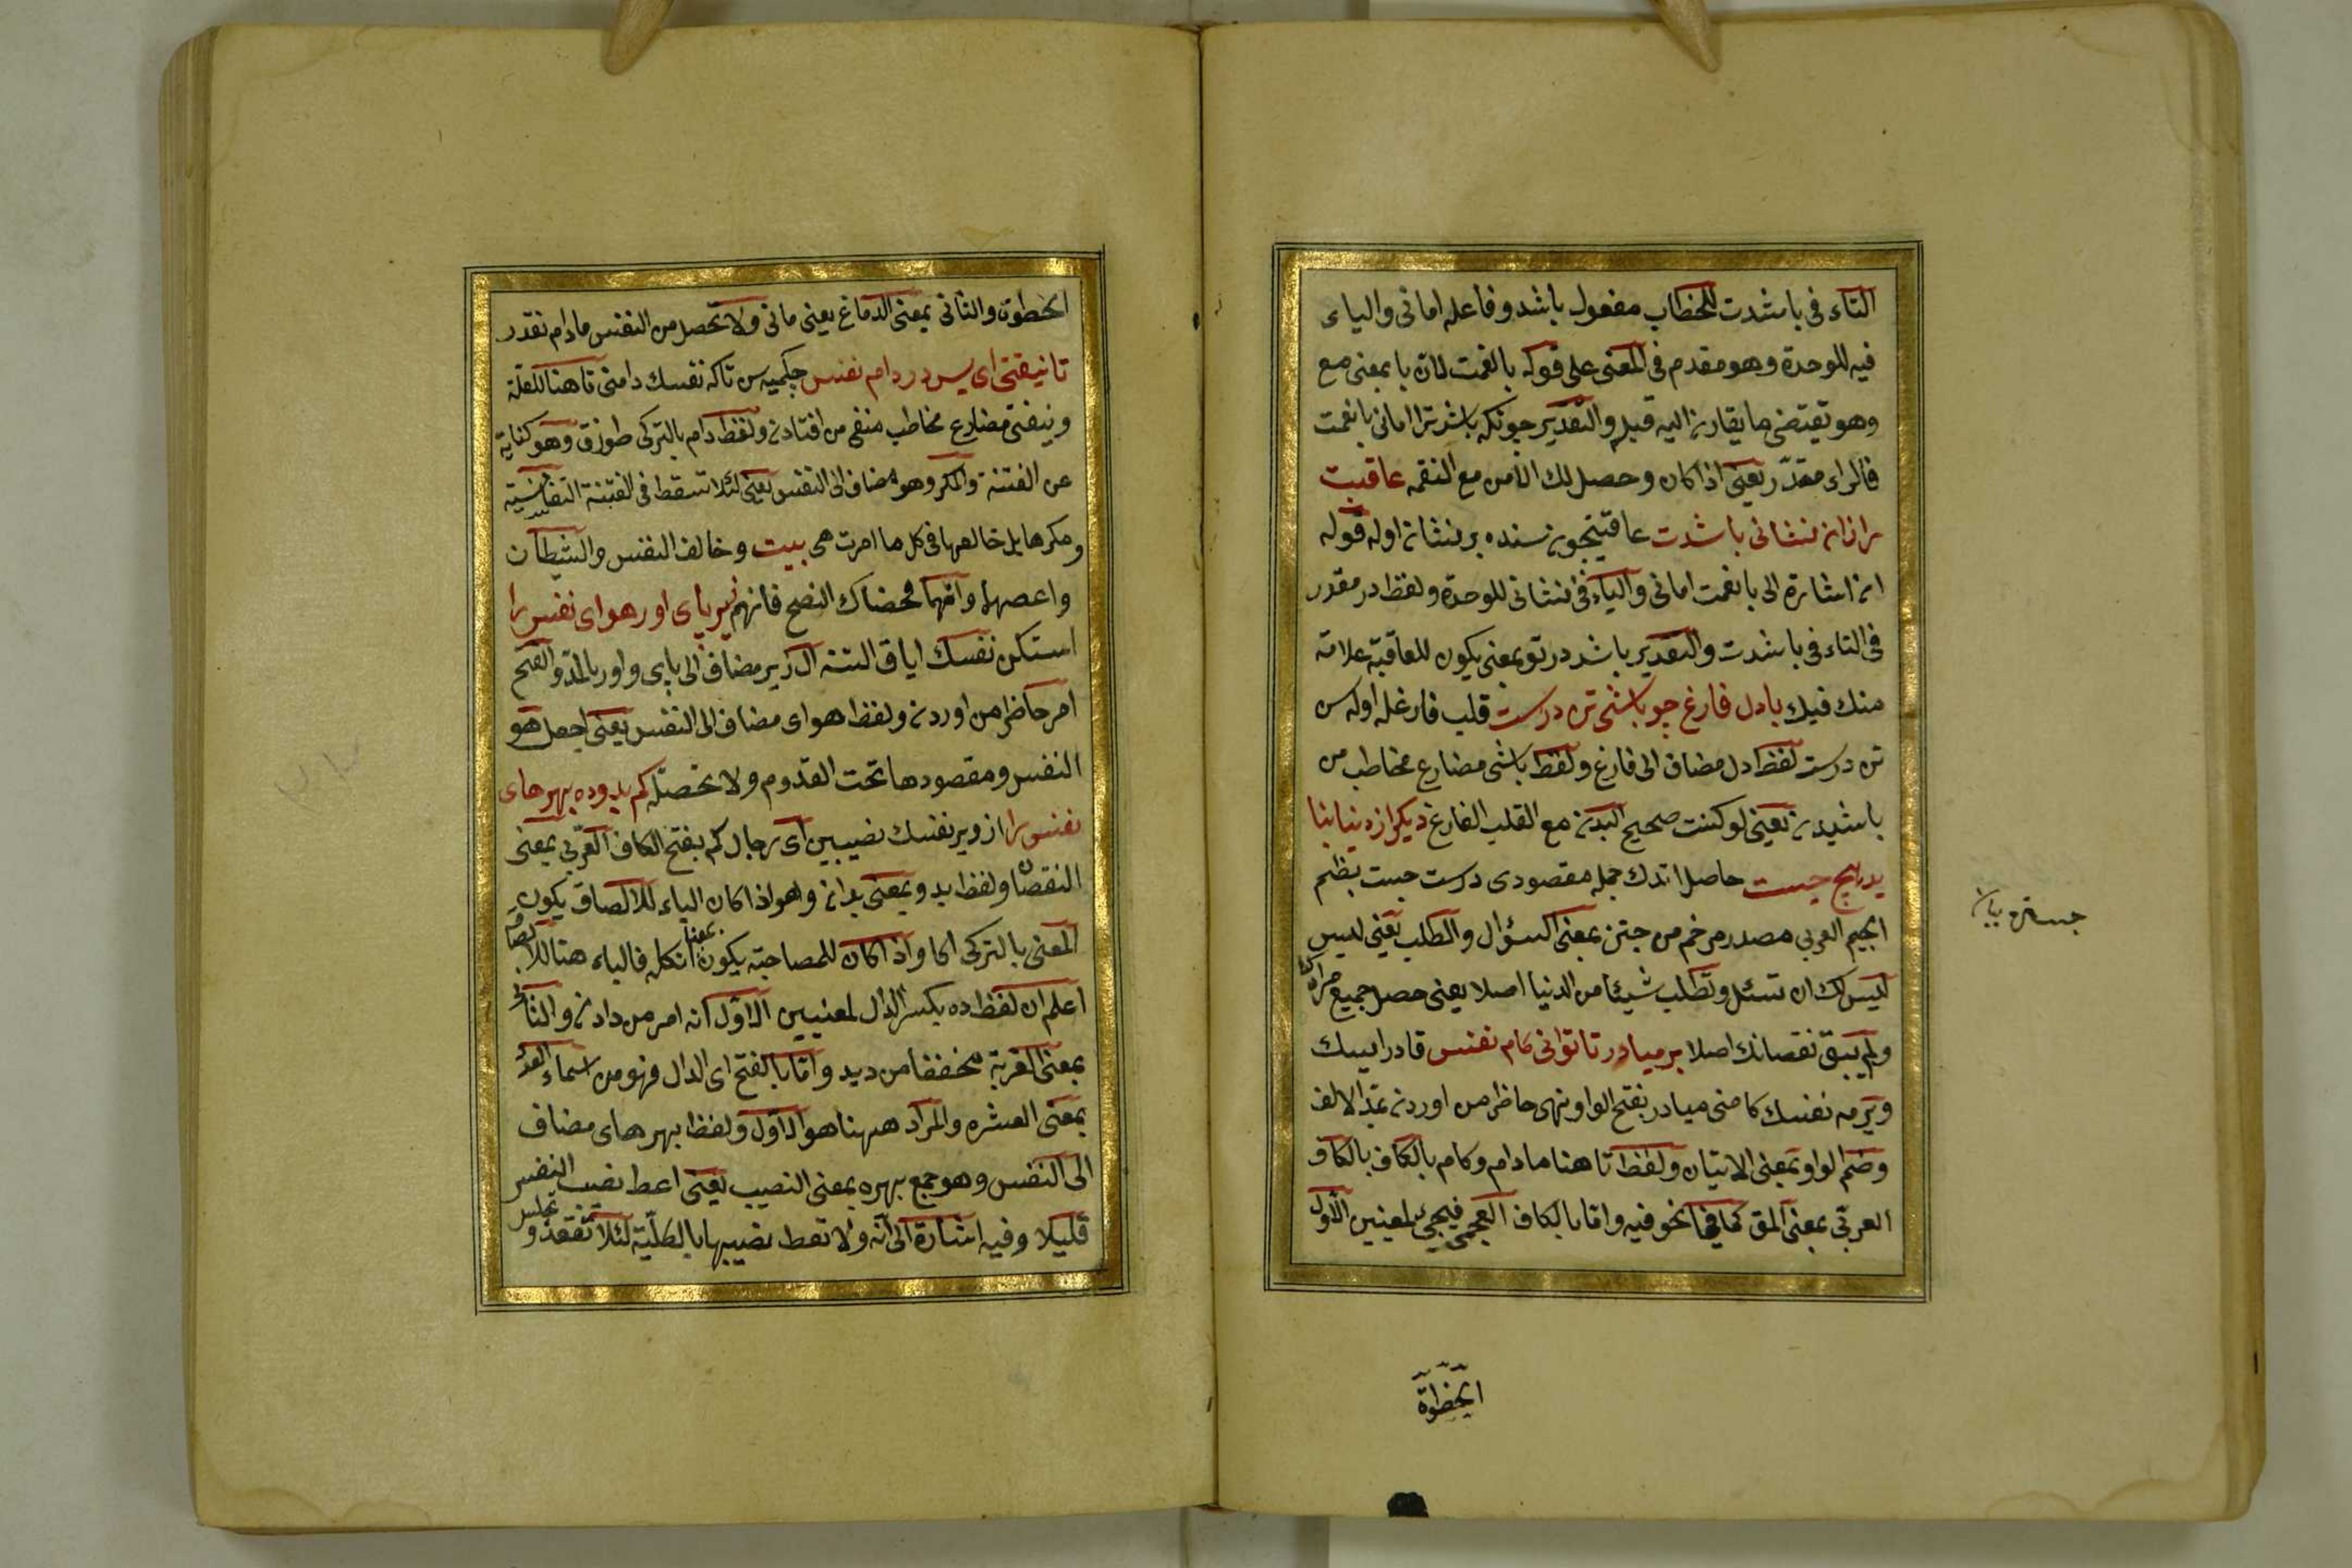 التاء فى باشدت للخطاب مفعول باشد وفاعله امانى والياء
فيه للوحدة وهو مقدم فى المعنى على قوله بانعمت لان با بمعنى مع
وهو تقتضى ما يقارن اليه قبله والتقدير چونكه باشد ترا امانى بانعمت
فالراء مقدر يعنى اذا كان وحصل لك الامن مع النقمه عاقبت
را زان نشانى باشدت عاقبتچون سنده بر نشان اوله قوله
ان اشارة الى بانعمت امانى والياء فى نشانى للوحدة ولفظ در مقدر
فى التاء فى باشدت والتقدير باشد در تو بمعنى يكون للعاقبة علامة
منك فيك بادل فارغ چو باشى تن درست قلب فارغله اوله سن
تن درست لفظ دل مضاف الى فارغ ولفظ باشى مضارع مخاطب من
باشيدن يعنى لو كنت صحيح البدن مع القلب الفارغ ديكر از دنيا
حاصل اتدك جمله مقصودى درست جست بظم
الجيم العربى مصدر مرخم من جتن بمعنى السؤال والطلب يعنى ليس
ليس لك ان تسئل وتطلب شيئا من الدنيا اصلا يعنى حصل جميع مرادك
ولم يبق نقصانك اصلا بر مياور تا توانى كام نفس قادر ايسك
ويرمه نفسك كامنى مياور بفتح الواو نهى حاظر من اوردن بمد الالف
وضم الواو بمعنى الاتيان ولفظ تا هنا مادام وكام بالكاف بالكاف
العربى بمعنى المق كما فيما نحو فيه واما بالكاف العجمى فيجئ لمعنيين الاول
الخطوة
الخطوة والثانى بمعنى الدماغ يعنى مانى ولا تحصل من النفس مادام تقدر
تا نيفتى اى پس در دام نفس چكميه سن تاكه نفسك دامنى تا هنا للعلة
ونيفتى مضارع مخاطب منفى من افتادن ولفظ دام بالتركى طوزق وهو كناية
عن الفتنة والمكر وهو مضاف الى النفس يعنى لئلا تسقط فى الفتنة النفسانية
ومكرها بل خالفها فى كل ما امرت هى بيت وخالف النفس والشيطان
واعصهما وان هما محضاك النصح فاتهم زير پاى اور هواى نفس را
استكن نفسك اياق التنه ال زير مضاف الى پاى واور بالمد والفتح
امر حاظر من اوردن ولفظ هواى مضاف الى النفس يعنى اجعل هو
النفس ومقصودها تحت القدوم ولا تحصله كم بدو ده بهرهاى
نفس را از وير نفسك نصيبين اى رجال كم بفتح الكاف العربى بمعنى
النقصان ولفظ بدو بمعنى بدان وهو اذا كان الباء للالصاق يكون
المعنى بالتركى اكا واذا كان للمصاحبة يكون بمعنا انكله فالباء هنا للالصاق
اعلم ان لفظ ده بكسر الدال لمعنيين الاول انه امر من دادن والثانى
بمعنى القرية مخففا من ديه واما بالفتح اى الدال فهو من اسماء العدد
بمعنى العشره والمراد ههنا هو الاول ولفظ بهرهاى مضاف
الى النفس وهو جمع بهره بمعنى النصيب يعنى اعط نصيب النفس
قليلا وفيه اشارة الى انه ولا تعط نصيبها بالكلية لئلا تقعد و